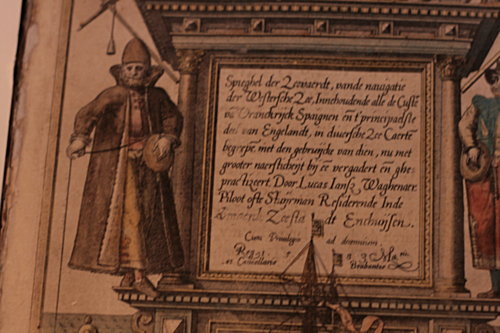 Spieghel der Zeevaerdt, vande nauigatie
der Westersche Zee, Innehoudende alle de Custẽ
vã Vranckrijck Spaignen eñ t'principaelste
deel van Engelandt, in diuersche Zee Caertẽ
begrepẽ, met den gebruijcke van dien, nu met
grooter naersticheijt bij eẽ vergadert eñ ghe=
practizeert. Door Lucas Iansz Waghenaer
Piloot ofte Stuijrman Residerende Inde
Zeestadt Enchuijsen.
Cum Priuilegio ad decennium
Brabantiæ
et Cancellarie